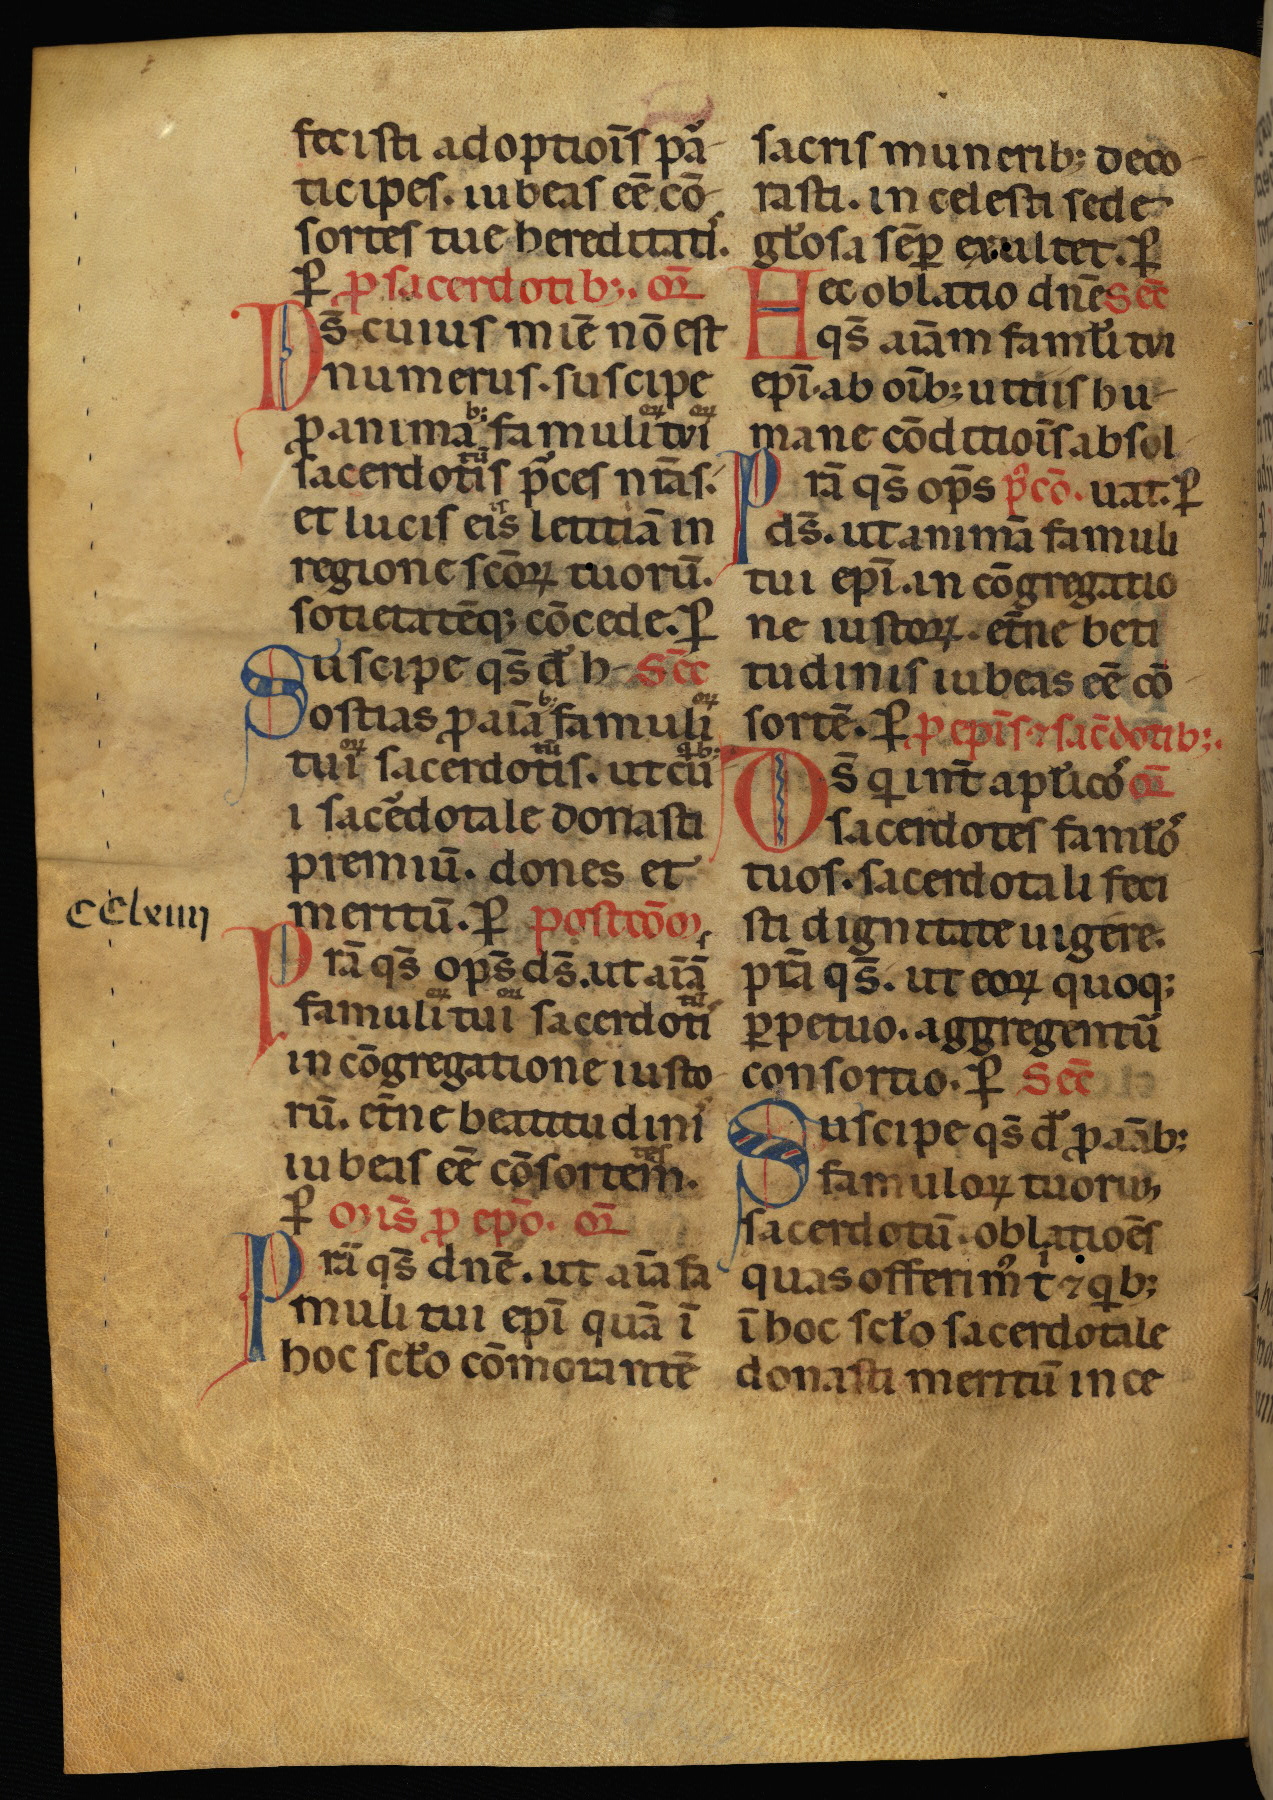 fecisti adoptiōīs pa᷑
ticipes. iubeas eē cō
sortes tue hereditatis.
ꝑ ꝓ sacerdotib;. or̄
Ds̄ cuius mīe nō est
numerus. suscipe
b; oꝝ oꝝ
ꝓ anima famuli tui
tū
sacerdotis p̄ces nr̄as.
is
et lucis eis letitiā in
regione sc̄oꝝ tuorū.
sotietatēq; cōcede. ꝑ
Suscipe qs̄ dn̄e h Sēc
b; oꝝ
ostias ꝓ aīa famuli
oꝝ tū qb;
tui sacerdotis. ut cū
i sac̄edotale donasti
premiū. dones et
CClxiiij
meritū. ꝑ postcōm
s
Pr̄a qs̄ ops̄ ds̄. ut aīā
oꝝ oꝝ tū
famuli tui sacerdoti
in cōgregatione iusto
rū. et̄ne beatitudinis
tes
iubeas eē cōsortem.
ꝑ Mis̄ ꝓ epō. or̄
Pr̄a qs̄ dn̄e. ut aīa fa
muli tui epī quā ī
hoc scło cōmorantē
sacris munerib; deco
rasti. in celesti sede
głosa sēꝑ exultet. ꝑ
Hec oblatio dn̄e Sēc
qs̄ aīam famłi tui
epī. ab oīb; uitiis hu
mane cōditiōīs absol
Pr̄a qs̄ ops̄ p᷒cō. uat. ꝑ
ds̄. ut animā famuli
tui epī. in cōgregatio
ne iustoꝝ. et̄ne beti
tudinis iubeas eē cō
sortē. ꝑ ꝓ epīs ⁊ sac̄dotib;.
Ds̄ q int̄ apłicos or̄
sacerdotes famłos
tuos. sacerdotali feci
sti dignitate uigere.
pr̄a qs̄. ut eoꝝ quoq;
ꝑpetuo. aggregentur
consortio. ꝑ Sēc
Suscipe qs̄ dn̄e ꝓ aīab;
famuloꝝ tuorum
sacerdotū. oblatiōes
quas offerim᷒ t ⁊ qb;
ī hoc scło sacerdotale
donasti meritū in ce